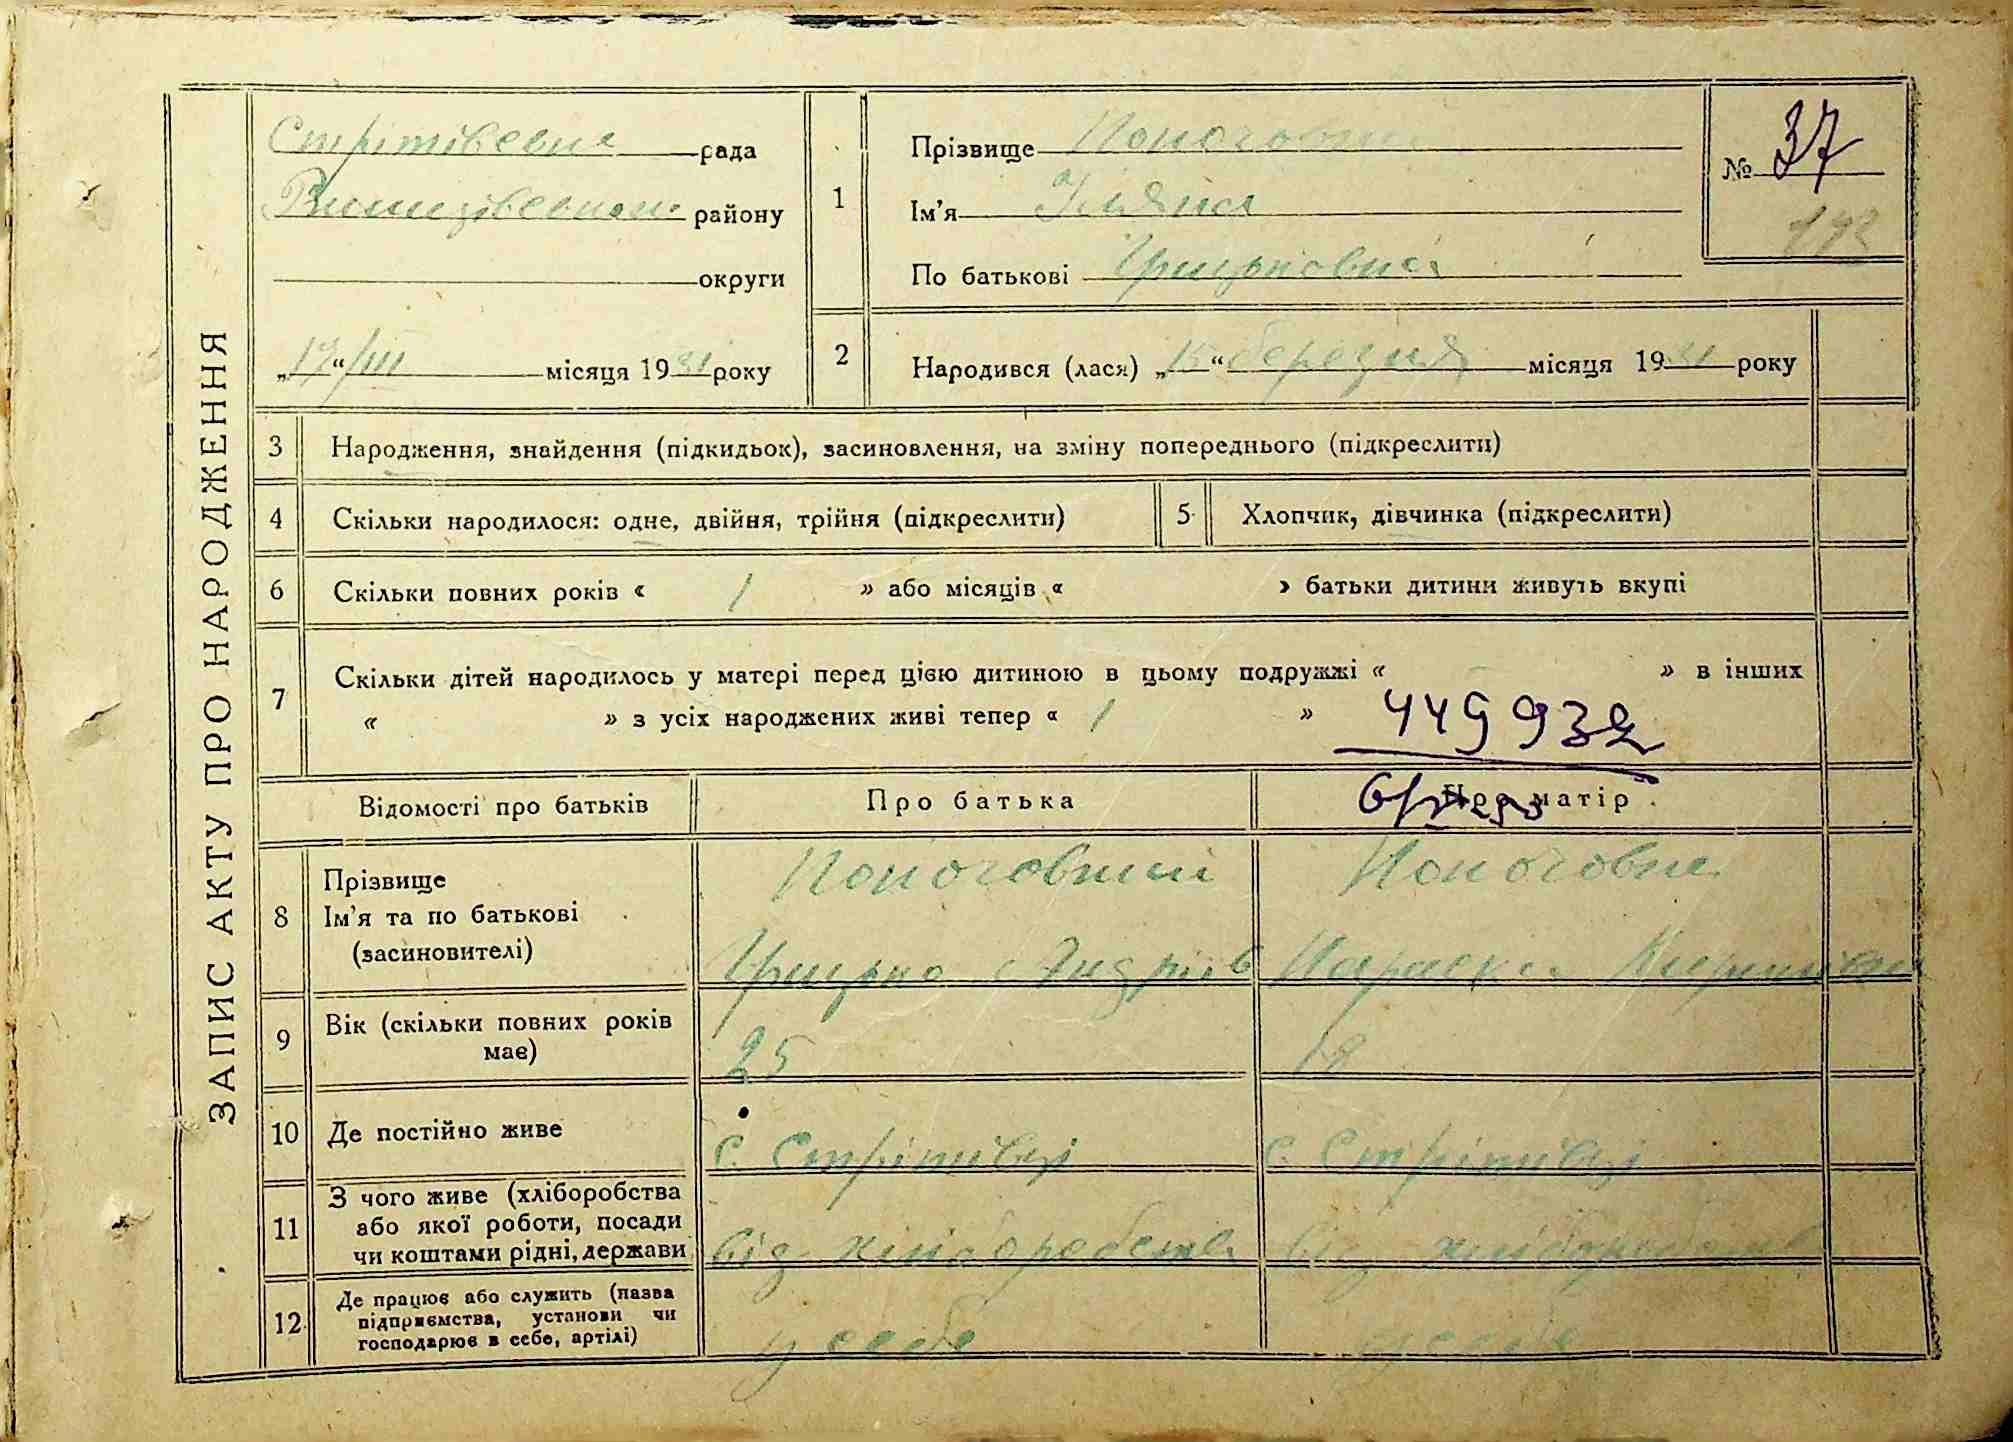 ЗАПИС АКТУ ПРО НАРОДЖЕННЯ
Стрітівська рада
району
округи
„17“ /III місяця 1931 року
1
Прізвище Поночовна
Ім'я Уляна
По батькові Грицьковна
№ 37
2
Народився (лася) „15“ березня місяця 1931 року
3 Народження, знайдення (підкидьок), засиновлення, на зміну попереднього (підкреслити)
4 Скільки народилося: одне, двійня, трійня (підкреслити)
5 Хлопчик, дівчинка (підкреслити)
6 Скільки повних років « 1 » або місяців « » батьки дитини живуть вкупі
7 Скільки дітей народилось у матері перед цією дитиною в цьому подружжі « » в інших
« » з усіх народжених живі тепер « 1 »
449932
Відомості про батьків
Про батька
Про матір
8 Прізвище
Ім'я та по батькові
(засиновителі)
Поночовний
Грицько Андріїв
Поночовна
Параска
9 Вік (скільки повних років
має)
25
18
10 Де постійно живе
с. Стрітівці
с. Стрітівці
11 З чого живе (хліборобства
або якої роботи, посади
чи коштами рідні, держави
від хліборобства
від хліборобства
12 Де працює або служить (назва
підприємства, установи чи
господарює в себе, артілі)
у себе
у себе